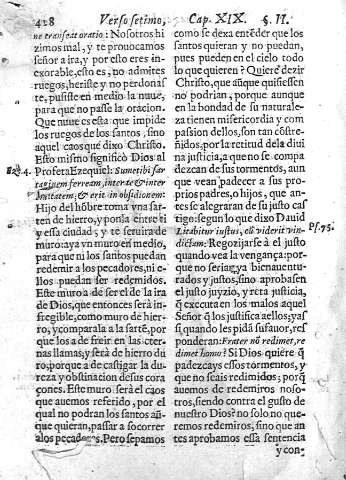 428 Verso setimo, Cap. XIX. §. II.
ne transeat oratio: Nosotros hi
zimos mal, y te prouocamos
señor a ira, y por esto eres in-
exorable, esto es, no admites
ruegos, heriste y no perdona
ste, pusiste en medio la nuue,
para que no passe la oracion.
Que nuue es esta que impide
los ruegos de los santos, sino
aquel caos que dixo Christo.
Esto mismo significò Dios al
Profeta Ezequiel: Sumetibi sar
taginem ferream, inter te & inter
ciuitatem, & erit in obsidionem:
Hijo del hõbre toma vna sar-
ten de hierro, y ponla entre ti
y essa ciudad, y te seruira de
muro: aya vn muro en medio,
para que ni los santos puedan
redemir a los pecadores, ni e-
llos puedan ser redemidos.
Este muro à de ser el de la ira
de Dios, que entonces serà in-
fregible, como muro de hie-
rro, y comparala a la sartẽ, por
que los à de freir en las eter-
nas llamas; y serà de hierro du
ro, porque a de castigar la du-
reza y obstinacion de sus cora
çones. Este muro serà el caos
que auemos referido, por el
qual no podran los santos aũ-
que quieran, passar a socorrer
a los pecadores. Pero sepamos
como se dexa entẽder que los
santos quieran y no puedan,
pues pueden en el cielo todo
lo que quieren? Quiere dezir
Christo, que aũque quisiessen
no podrian, porque aunque
en la bondad de su naturale-
za tienen misericordia y com
passion dellos, son tan cõstre-
ñidos, por la retitud dela diui
na justicia, a que no se compa
dezcan de sus tormentos, aun
que vean padecer a sus pro-
prios padres, o hijos, que an-
tes se alegraran de su justo cas
tigo: segun lo que dixo Dauid
Lætabitur iustus, cũ viderit vin-
dictam: Regozijarse à el justo
quando vea la vengança: por-
que no serian ya bienauentu-
rados y justos, sino aprobasen
el justo juyzio, y reta justicia,
q̃ executa en los malos aquel
Señor q̃ los justifica a ellos; y assi
si quando les pidã su fauor, res
ponderan: Frater nõ redimet, re
dimet homo? Si Dios quiere q̃
padezcays essos tormentos, y
que no seais redimidos; porq̃
auemos de redemiros noso-
tros, siendo contra el gusto de
nuestro Dios? no solo no que-
remos redemiros, sino que an
tes aprobamos essa sentencia
y con-
Ps. 75.